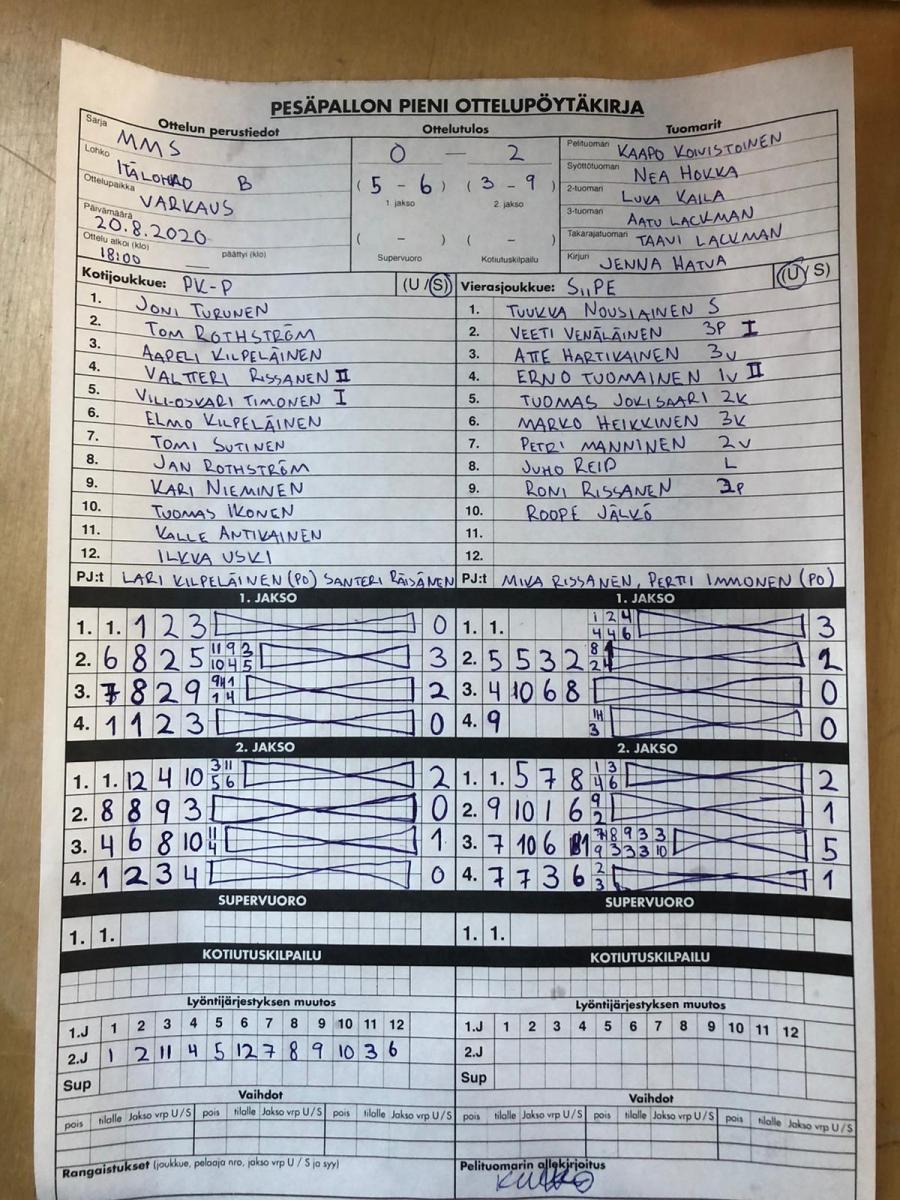 PESÄPALLON PIENI OTTELUPÖYTÄKIRJA
Ottelun perustiedot
Sarja MMS
Lohko ITÄLOHKO B
Ottelupaikka VARKAUS
Päivämäärä 20.8.2020
Ottelu alkoi (klo) 18:00 päättyi (klo)
Ottelutulos
0 — 2
( 5 - 6 ) ( 3 - 9 )
1. jakso 2. jakso
( - ) ( - )
Supervuoro Kotiutuskilpailu
Tuomarit
Pelituomari KAAPO KOIVISTOINEN
Syöttötuomari NEA HOKKA
2-tuomari LUKA KAILA
3-tuomari AATU LACKMAN
Takarajatuomari TAAVI LACKMAN
Kirjuri JENNA HATVA
Kotijoukkue: PK-P (U / S)
1. JONI TURUNEN
2. TOM ROTHSTRÖM
3. AAPELI KILPELÄINEN
4. VALTTERI RISSANEN II
5. VILI-OSKARI TIMONEN I
6. ELMO KILPELÄINEN
7. TOMI SUTINEN
8. JAN ROTHSTRÖM
9. KARI NIEMINEN
10. TUOMAS IKONEN
11. KALLE ANTIKAINEN
12. ILKKA USKI
PJ:t LARI KILPELÄINEN (PO) SANTERI RÄISÄNEN
Vierasjoukkue: SiiPE (U / S)
1. TUUKKA NOUSIAINEN S
2. VEETI VENÄLÄINEN 3P I
3. ATTE HARTIKAINEN 3V
4. ERNO TUOMAINEN 1V II
5. TUOMAS JOKISAARI 2K
6. MARKO HEIKKINEN 3K
7. PETRI MANNINEN 2V
8. JUHO REID L
9. RONI RISSANEN 2P
10. ROOPE JÄLKÖ
11.
12.
PJ:t MIKA RISSANEN, PERTTI IMMONEN (PO)
1. JAKSO
1. 1. 1 2 3 0
2. 6 8 2 5 11 9 3 3
10 4 5
3. 7 8 2 9 2
1 4
4. 1 1 2 3 0
1. JAKSO
1. 1. 1 2 4 3
4 4 6
2. 5 5 3 2 8
3. 4 10 6 8 0
4. 9 0
3
2. JAKSO
1. 1. 12 4 10 3 11 2
5 6
2. 8 8 9 3 0
3. 4 6 8 10 11 1
4
4. 1 2 3 4 0
2. JAKSO
1. 1. 5 7 8 1 3 2
4 6
2. 9 10 1 6 9 1
2
3. 7 10 6 8 9 3 3 5
9 3 3 3 10
4. 7 7 3 6 2 1
3
SUPERVUORO
1. 1.
SUPERVUORO
1. 1.
KOTIUTUSKILPAILU
KOTIUTUSKILPAILU
Lyöntijärjestyksen muutos
1.J 1 2 3 4 5 6 7 8 9 10 11 12
2.J 1 2 11 4 5 12 7 8 9 10 3 6
Sup
Lyöntijärjestyksen muutos
1.J 1 2 3 4 5 6 7 8 9 10 11 12
2.J
Sup
Vaihdot
pois tilalle Jakso vrp U / S pois tilalle Jakso vrp U / S pois tilalle Jakso vrp U / S
Vaihdot
pois tilalle Jakso vrp U / S pois tilalle Jakso vrp U / S pois tilalle Jakso vrp U / S
Rangaistukset (joukkue, pelaaja nro, jakso vrp U / S ja syy)
Pelituomarin allekirjoitus